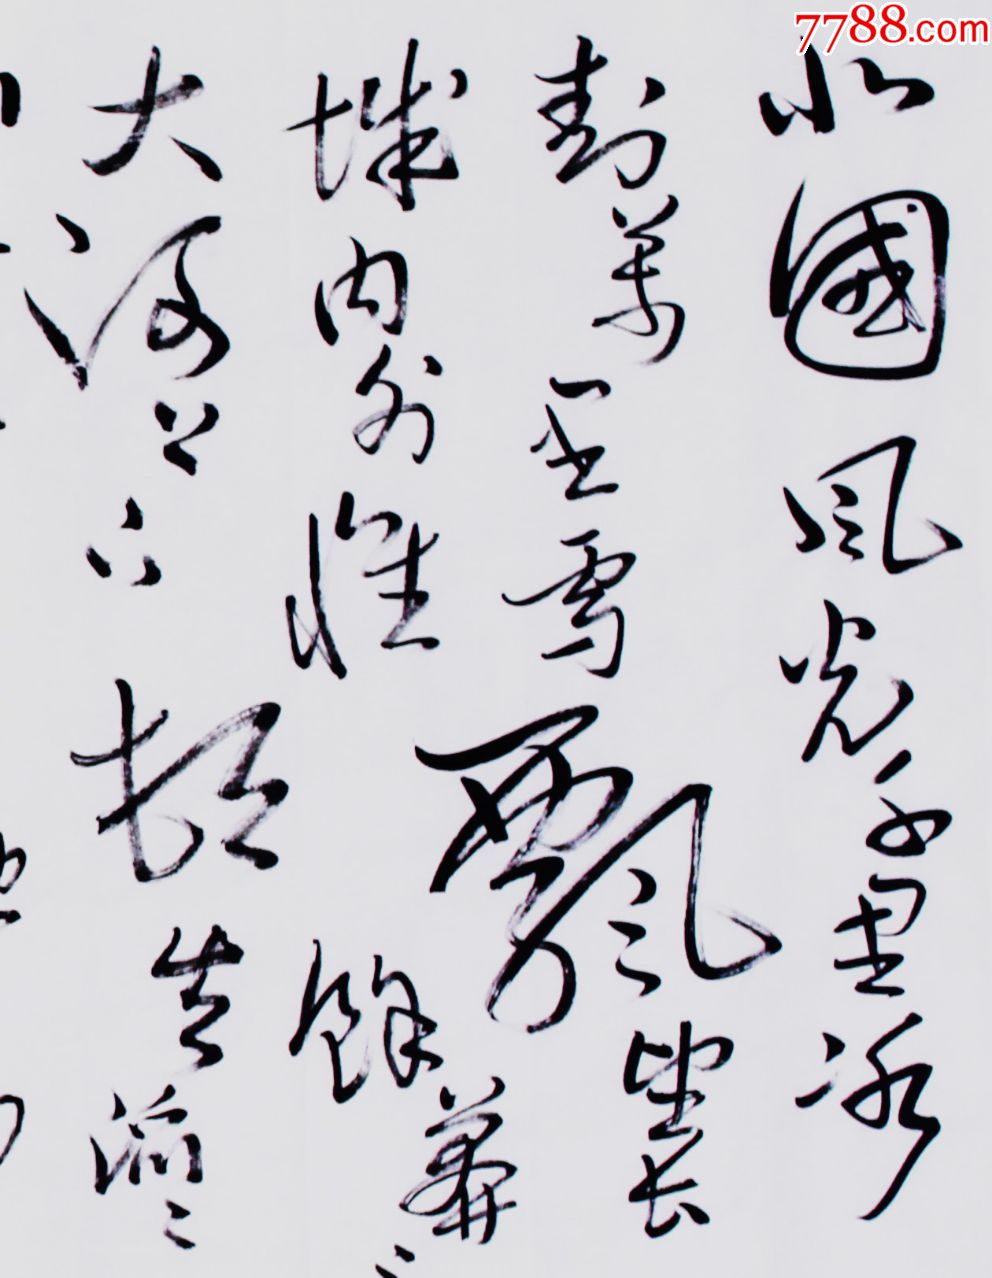 7788.com
北國风光千里冰
封萬里雪飄望长
城内外惟餘莽〻
大河上下頓失滔〻